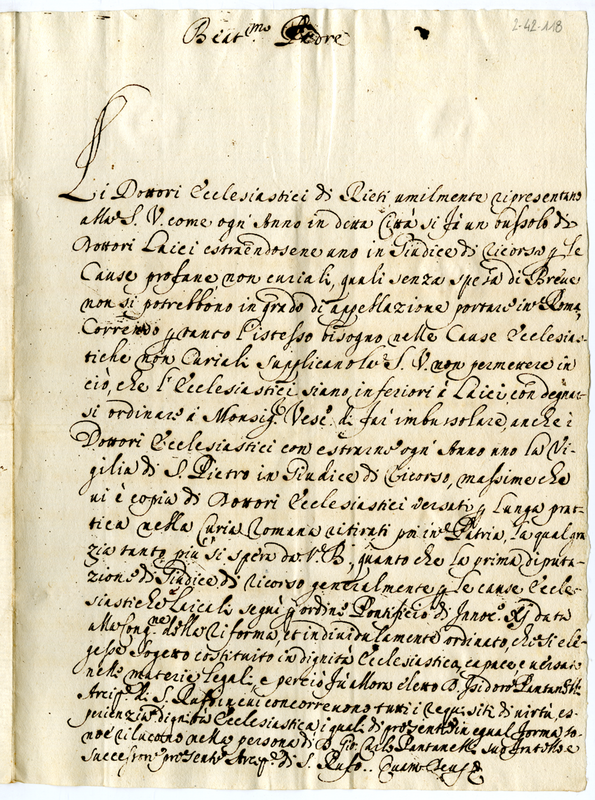 2-42-118
Beat.mo Padre
Li Dottori Ecclesiastici di Rieti umilmente ripresentano
alla S. V. come ogn' Anno in detta Città si fà un bussolo di
Dottori Laici estraendosene uno in Giudice di ricorso p le
Cause profane non curiali, quali senza spesa di Breve
non si potrebbono in grado di appellazione portare in Roma,
Correndo p tanto l'istesso bisogno nelle Cause Ecclesias-
tiche non Curiali supplicano la S. V. non permettere in
ciò, che l'Ecclesiastici siano inferiori à Laici con degnar-
si ordinare à Monsig.r Vesc.o di far imbussolare anche i
Dottori Ecclesiastici con estrarne ogn' Anno uno la Vi-
gilia di S. Pietro in Giudice di Ricorso, massime che
vi è copia di Dottori Ecclesiastici versati p lunga prat-
tica nella Curia Romana ritirati poi in Patria, la qual gra-
zia tanto più si spera da V. B., quanto che la prima diputa-
zione di Giudice di ricorso generalmente p le cause Eccle-
siastiche e Laicali seguì p ordine Pontificio di Innoc. XI data
alla Cong.ne della Riforma, et individualmente ordinato, che si eleg-
gesse Sogetto costituito in dignità Ecclesiastica, capace e versato
nelle materie legali, e perciò fù allora eletto D. Isidoro Pantanelli
Arcip.e di S. Ruffo in cui concorrevano tutti i requisiti di virtù, es-
perienza, e dignità Ecclesiastica, i quali di presente in egual forma, to-
no e rilucono nella persona di D. Gio. Pantanelli suo fratello e
successore presente Arcip.e di S. Rufo.. Quam Deus &